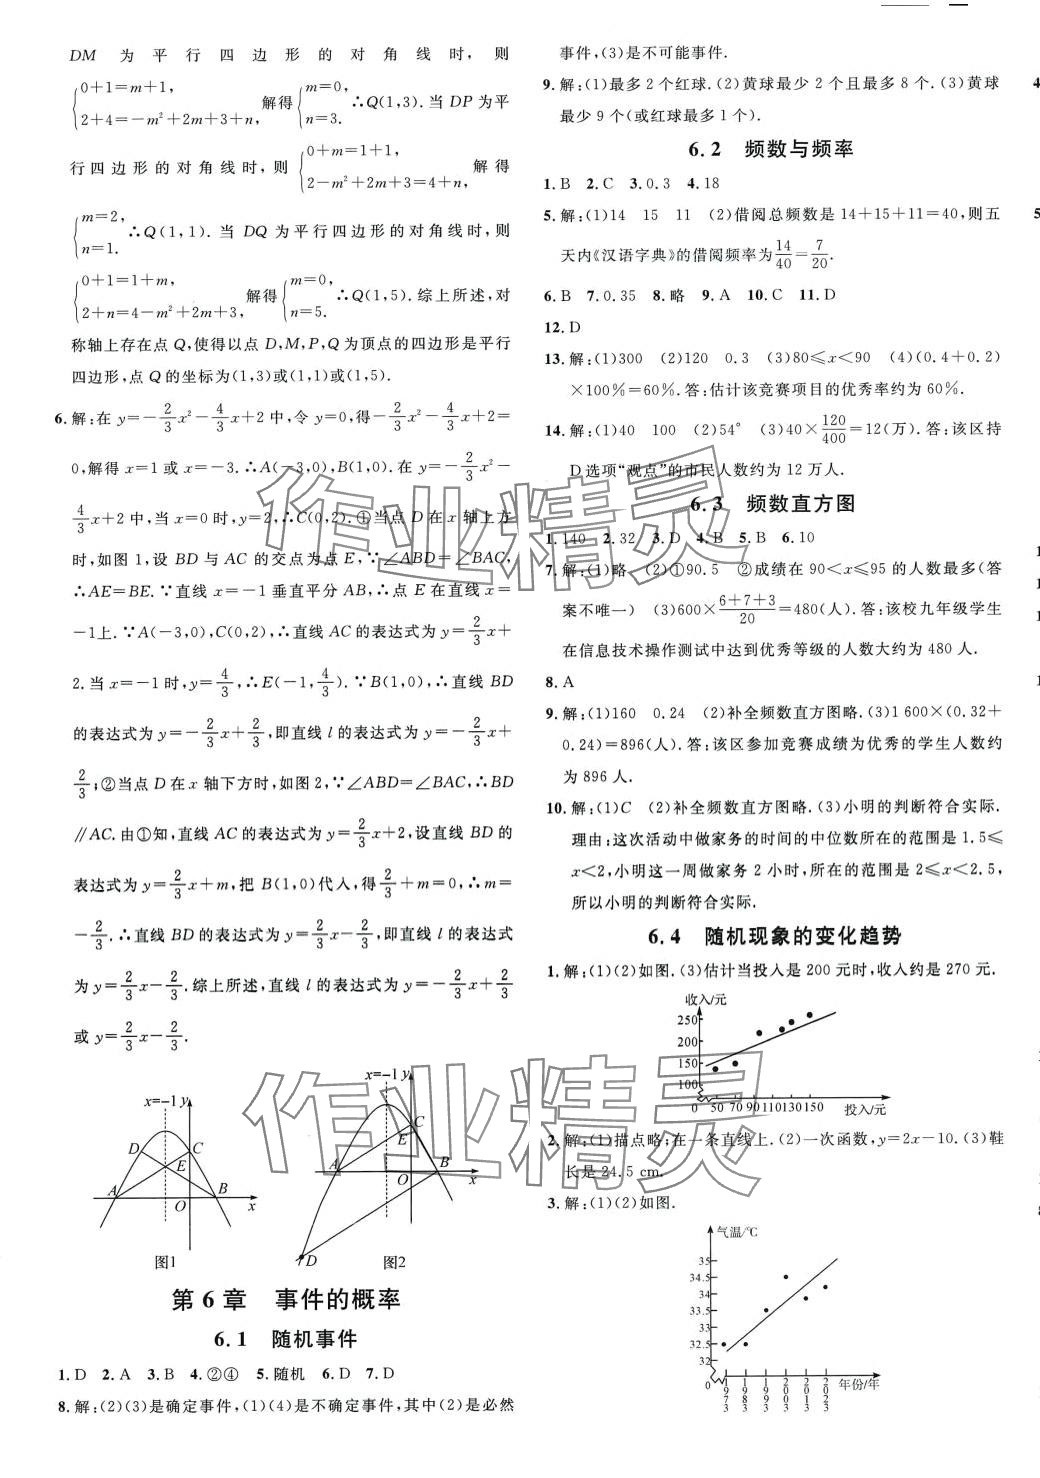 DM 为平行四边形的对角线时,则
{0+1=m+1, 2+4=-m²+2m+3+n, 解得{m=0, n=3. ∴Q(1,3).当 DP 为平
行四边形的对角线时,则{0+m=1+1, 2-m²+2m+3=4+n, 解得
{m=2, n=1. ∴Q(1,1).当 DQ 为平行四边形的对角线时,则
{0+1=1+m, 2+n=4-m²+2m+3, 解得{m=0, n=5. ∴Q(1,5).综上所述,对
称轴上存在点 Q,使得以点 D,M,P,Q 为顶点的四边形是平行
四边形,点 Q 的坐标为(1,3)或(1,1)或(1,5).
6.解:在 y=-2/3x²-4/3x+2 中,令 y=0,得-2/3x²-4/3x+2=
0,解得 x=1 或 x=-3.∴A(-3,0),B(1,0).在 y=-2/3x²-
4/3x+2 中,当 x=0 时,y=2,∴C(0,2).①当点 D 在 x 轴上方
时,如图 1,设 BD 与 AC 的交点为点 E,∵∠ABD=∠BAC,
∴AE=BE.∵直线 x=-1 垂直平分 AB,∴点 E 在直线 x=
-1上.∵A(-3,0),C(0,2),∴直线 AC 的表达式为 y=2/3x+
2.当 x=-1 时,y=4/3,∴E(-1,4/3).∵B(1,0),∴直线 BD
的表达式为 y=-2/3x+2/3,即直线 l 的表达式为 y=-2/3x+
2/3;②当点 D 在 x 轴下方时,如图 2,∵∠ABD=∠BAC,∴BD
∥AC.由①知,直线 AC 的表达式为 y=2/3x+2,设直线 BD 的
表达式为 y=2/3x+m,把 B(1,0)代人,得2/3+m=0,∴m=
-2/3.∴直线 BD 的表达式为 y=2/3x-2/3,即直线 l 的表达式
为 y=2/3x-2/3.综上所述,直线 l 的表达式为 y=-2/3x+2/3
或 y=2/3x-2/3.
x=-1 y
D C E A O B x
图1
x=-1 y
C E A O B x D
图2
第 6 章 事件的概率
6.1 随机事件
1.D 2.A 3.B 4.②④ 5.随机 6.D 7.D
8.解:(2)(3)是确定事件,(1)(4)是不确定事件,其中(2)是必然
事件,(3)是不可能事件.
9.解:(1)最多 2 个红球.(2)黄球最少 2 个且最多 8 个.(3)黄球
最少 9 个(或红球最多 1 个).
6.2 频数与频率
1.B 2.C 3.0.3 4.18
5.解:(1)14 15 11 (2)借阅总频数是 14+15+11=40,则五
天内《汉语字典》的借阅频率为14/40=7/20.
6.B 7.0.35 8.略 9.A 10.C 11.D
12.D
13.解:(1)300 (2)120 0.3 (3)80≤x<90 (4)(0.4+0.2)
×100%=60%.答:估计该竞赛项目的优秀率约为 60%.
14.解:(1)40 100 (2)54° (3)40×120/400=12(万).答:该区持
D 选项“观点”的市民人数约为 12 万人.
6.3 频数直方图
1.140 2.32 3.D 4.B 5.B 6.10
7.解:(1)略 (2)①90.5 ②成绩在 90<x≤95 的人数最多(答
案不唯一) (3)600×6+7+3/20=480(人).答:该校九年级学生
在信息技术操作测试中达到优秀等级的人数大约为 480 人.
8.A
9.解:(1)160 0.24 (2)补全频数直方图略.(3)1 600×(0.32+
0.24)=896(人).答:该区参加竞赛成绩为优秀的学生人数约
为 896 人.
10.解:(1)C (2)补全频数直方图略.(3)小明的判断符合实际.
理由:这次活动中做家务的时间的中位数所在的范围是 1.5≤
x<2,小明这一周做家务 2 小时,所在的范围是 2≤x<2.5,
所以小明的判断符合实际.
6.4 随机现象的变化趋势
1.解:(1)(2)如图.(3)估计当投人是 200 元时,收人约是 270 元.
收入/元
250
200
150
100
0 50 70 90 110 130 150 投入/元
2.解:(1)描点略;在一条直线上.(2)一次函数,y=2x-10.(3)鞋
长是 24.5 cm.
3.解:(1)(2)如图.
气温/℃
35
34.5
34
33.5
33
32.5
32
0 1973 1983 1993 2003 2013 2023 年份/年
作业精灵
作业精灵